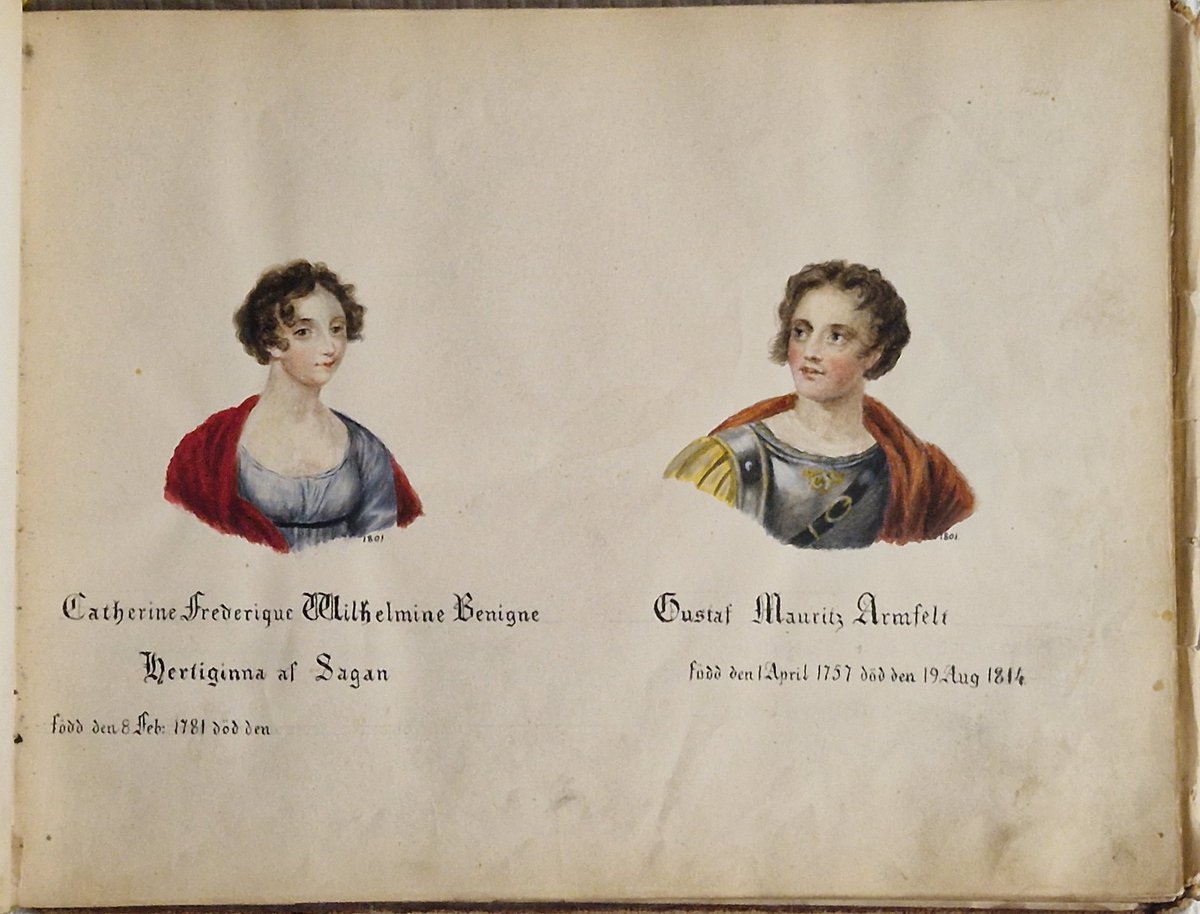 1801
Catherine Frederique Wilhelmine Benigne
Hertiginna af Sagan
född den 8 Feb: 1781 död den
1801
Gustaf Mauritz Armfelt
född den 1 April 1757 död den 19 Aug 1814